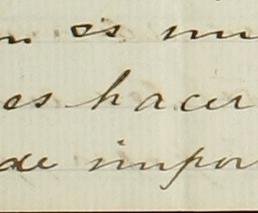 es
es hacer
de impor